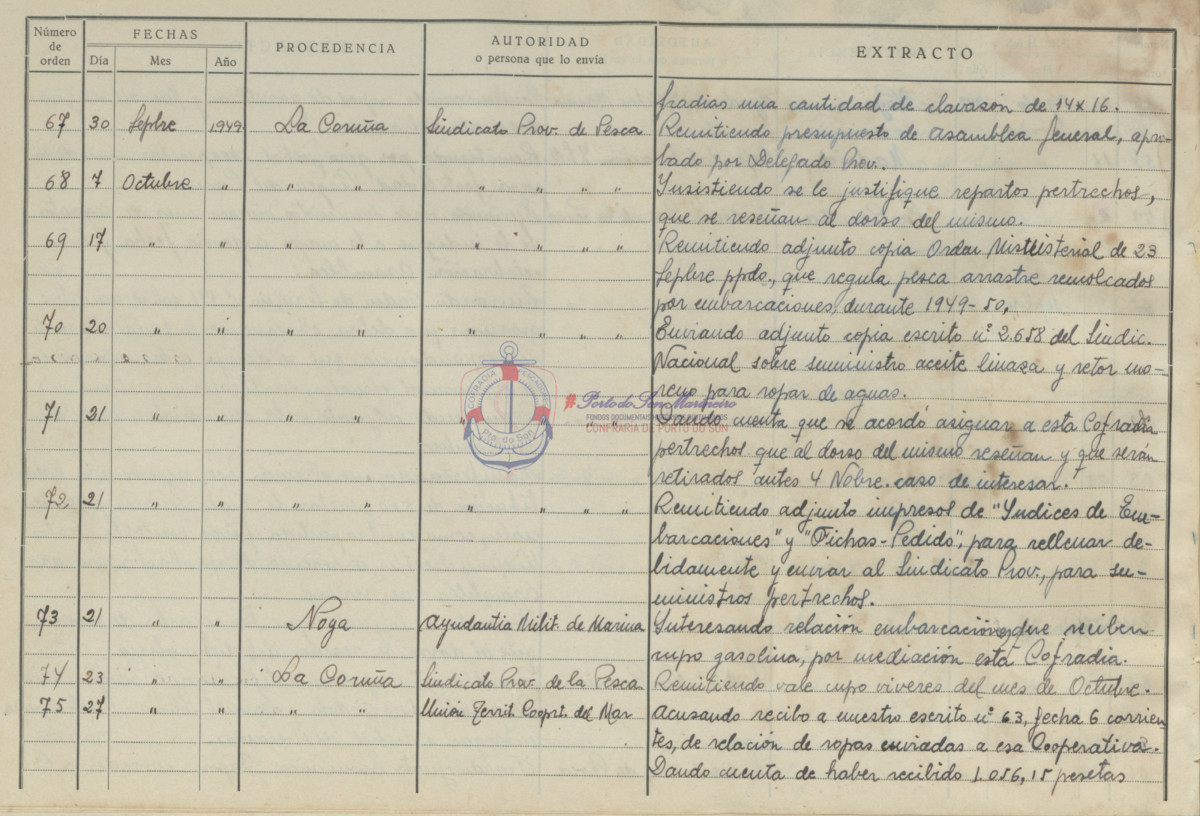 Número de orden
FECHAS
Día Mes Año
PROCEDENCIA
AUTORIDAD
o persona que lo envía
EXTRACTO
fradias una cantidad de clavasón de 14 x 16.
67 30 Sepbre 1949 La Coruña Sindicato Prov. de Pesca Remitiendo presupuesto de Asamblea General, apro-
bado por Delegado Prov.
68 7 Octubre " " " " " " Insistiendo se le justifique repartos pertrechos,
que se reseñan al dorso del mismo.
69 17 " " " " " " " Remitiendo adjunto copia Orden Ministerial de 23
Sepbre ppdo., que regula pesca arrastre remolcados
por embarcaciones, durante 1949-50,
70 20 " " " " " " " Enviando adjunto copia escrito nº 2.658 del Sindic.
Nacional sobre suministro aceite linaza y retor mo-
reno para ropar de aguas.
71 21 " " " " " " " Dando cuenta que se acordó asignar a esta Cofradía
pertrechos que al dorso del mismo reseñan y que serán
retirados antes 4 Nobre. caso de interesar.
72 21 " " " " " " " Remitiendo adjunto impresos de "Indices de Em-
barcaciones" y "Fichas-Pedido", para rellenar de-
bidamente y enviar al Sindicato Prov., para su-
ministros pertrechos.
73 21 " " Noya Ayudantia Milit. de Marina Interesando relación embarcaciones que reciben
cupo gasolina, por mediación esta Cofradia.
74 23 " " La Coruña Sindicato Prov. de la Pesca Remitiendo vale cupo viveres del mes de Octubre.
75 27 " " " " Unión Territ. Cooprt. del Mar Acusando recibo a nuestro escrito nº 63, fecha 6 corrien-
tes, de relación de ropas enviadas a esa Cooperativa.
Dando cuenta de haber recibido 1.056,15 pesetas
COFRADIA PESCADORES
Pto. do Son
#Porto do Son Marineiro
CONFRARIA DE PORTO DO SON